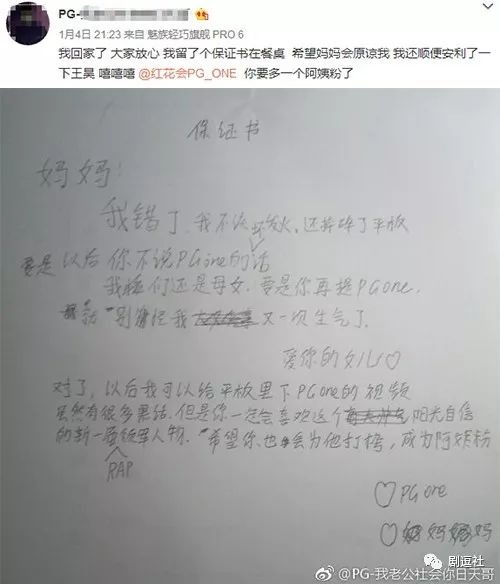 PG-
1月4日 21:23 来自 魅族轻巧旗舰 PRO 6
我回家了 大家放心 我留了个保证书在餐桌 希望妈妈会原谅我 我还顺便安利了一
下王昊 嘻嘻嘻 @红花会PG_ONE 你要多一个阿姨粉了
保证书
妈妈:
我错了,我不该发火,还摔碎了平板
要是以后你不说PGone的话
我们还是母女.要是你再提PGone.
别怪我又一次生气了.
爱你的女儿♡
对了,以后我可以给平板里下PGone的视频
虽然有很多黑话.但是你一定会喜欢这个阳光自信
的新一届RAP人物."希望你也会为他打榜,成为阿姨粉
♡PGone
♡妈妈
@PG-我老公社会你日天哥
剧逗社